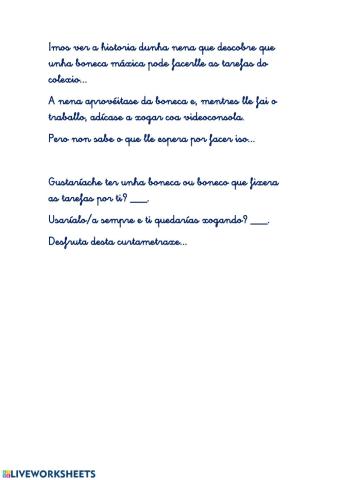 Imos ver a historia dunha nena que descobre que
unha boneca máxica pode facerlle as tarefas do
colexio...
A nena aprovéitase da boneca e, mentres lle fai o
traballo, adícase a xogar coa videoconsola.
Pero non sabe o que lle espera por facer iso...
Gustaríache ter unha boneca ou boneco que fixera
as tarefas por ti? ___.
Usaríalo/a sempre e ti quedarías xogando? ___.
Desfruta desta curtametraxe...
LIVEWORKSHEETS